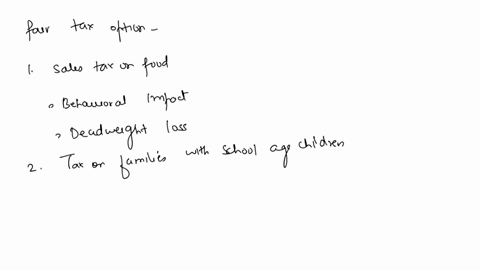 fair tax option -
1. sales tax on food
Behavioral impact
Deadweight loss
2. Tax on families with school age children